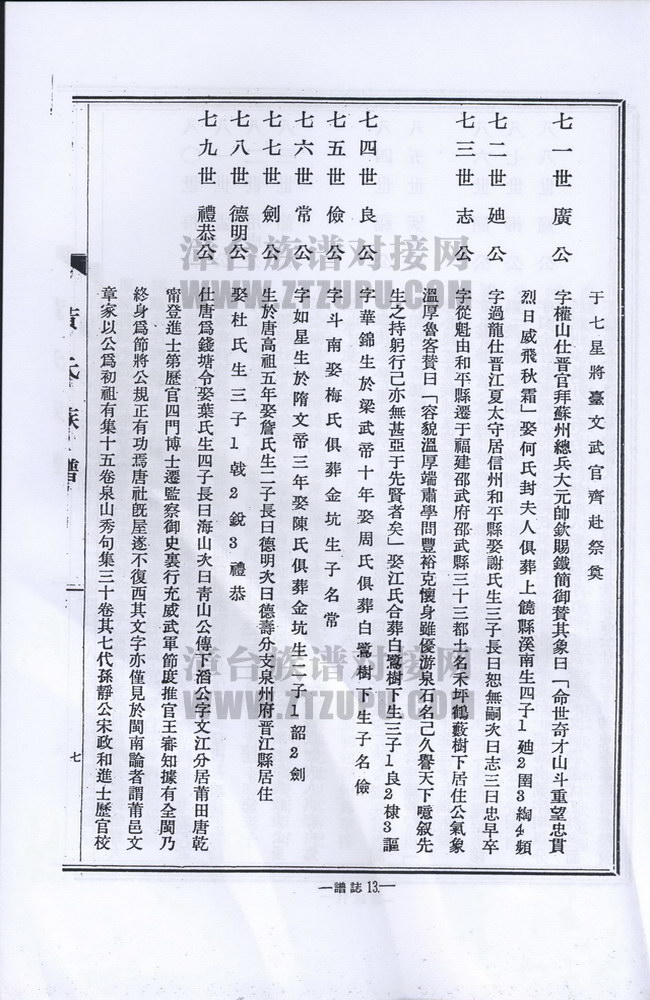 于七星將臺文武官齊赴祭奠
七一世廣公 字權山仕晋官拜蘇州總兵大元帥欽賜鐵簡御贊其象曰「命世奇才山斗重望忠貫
烈日威飛秋霜」娶何氏封夫人俱葬上饒縣溪南生四子1廸2圉3絢4頫
七二世廸公 字過龍仕晋江夏太守居信州和平縣娶謝氏生三子長曰恕無嗣次曰志三曰忠早卒
七三世志公 字從魁由和平縣遷于福建邵武府邵武縣三十三都土名禾坪鶴藪樹下居住公氣象
溫厚魯客贊曰「容貌溫厚端肅學問豐裕克懷身雖優游泉石名己久譽天下噫叙先
生之持躬行己亦無甚亞于先賢者矣」娶江氏合葬白鷺樹下生三子1良2棣3謳
七四世良公 字華錦生於梁武帝十年娶周氏俱葬白鷺樹下生子名儉
七五世儉公 字斗南娶梅氏俱葬金坑生子名常
七六世常公 字如星生於隋文帝三年娶陳氏俱葬金坑生二子1韶2劍
七七世劍公 生於唐高祖五年娶詹氏生二子長曰德明次曰德壽分支泉州府晋江縣居住
七八世德明公 娶杜氏生三子1戟2銳3禮恭
七九世禮恭公 仕唐爲錢塘令娶葉氏生四子長曰海山次曰靑山公傳下滔公字文江分居莆田唐乾
甯登進士第歷官四門博士遷監察御史裏行充威武軍節度推官王審知據有全閩乃
終身爲節將公規正有功焉唐社旣屋遂不復西其文字亦僅見於閩南論者謂莆邑文
章家以公爲初祖有集十五卷泉山秀句集三十卷其七代孫靜公宋政和進士歷官校
黄氏族譜
七
—譜誌13.—
漳台族谱对接网
WWW.ZTZUPU.COM
漳台族谱对接网
WWW.ZTZUPU.COM